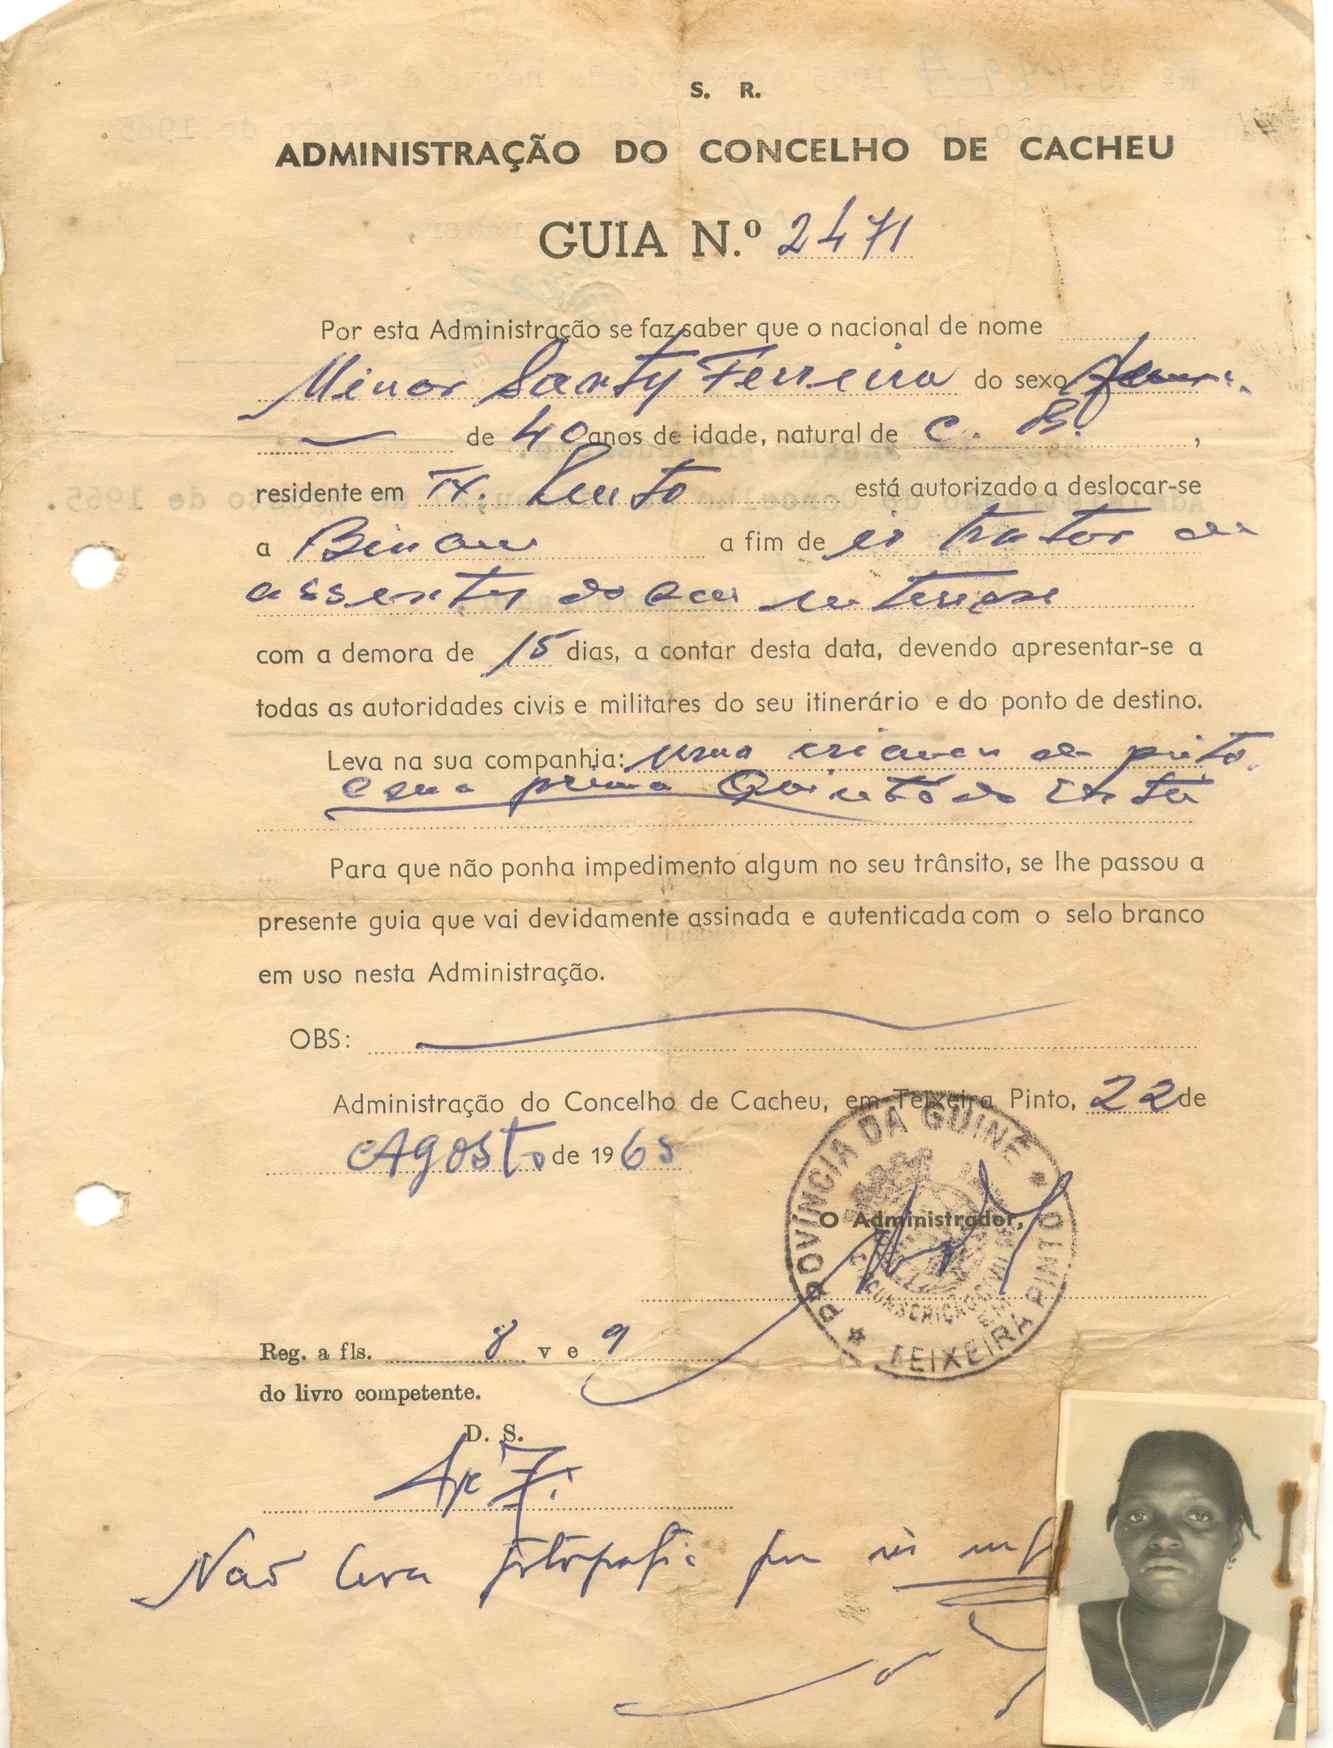 S. R.
ADMINISTRAÇÃO DO CONCELHO DE CACHEU
GUIA N.º 2471
Por esta Administração se faz saber que o nacional de nome
Minor Santy Ferreira do sexo
de 40 anos de idade, natural de C. B. ,
residente em Tx. Pinto está autorizado a deslocar-se
a Binar a fim de ir tratar de
assentos do seu interesse
com a demora de 15 dias, a contar desta data, devendo apresentar-se a
todas as autoridades civis e militares do seu itinerário e do ponto de destino.
Leva na sua companhia: uma criança de peito
e sua prima
Para que não ponha impedimento algum no seu trânsito, se lhe passou a
presente guia que vai devidamente assinada e autenticada com o selo branco
em uso nesta Administração.
OBS:
Administração do Concelho de Cacheu, em Teixeira Pinto, 22 de
Agosto de 1965
PROVÍNCIA DA GUINÉ
O Administrador,
CIRCUNSCRIÇÃO CIVIL
TEIXEIRA PINTO
Reg. a fls. 8 v e 9
do livro competente.
D. S.
Não leva fotografia por